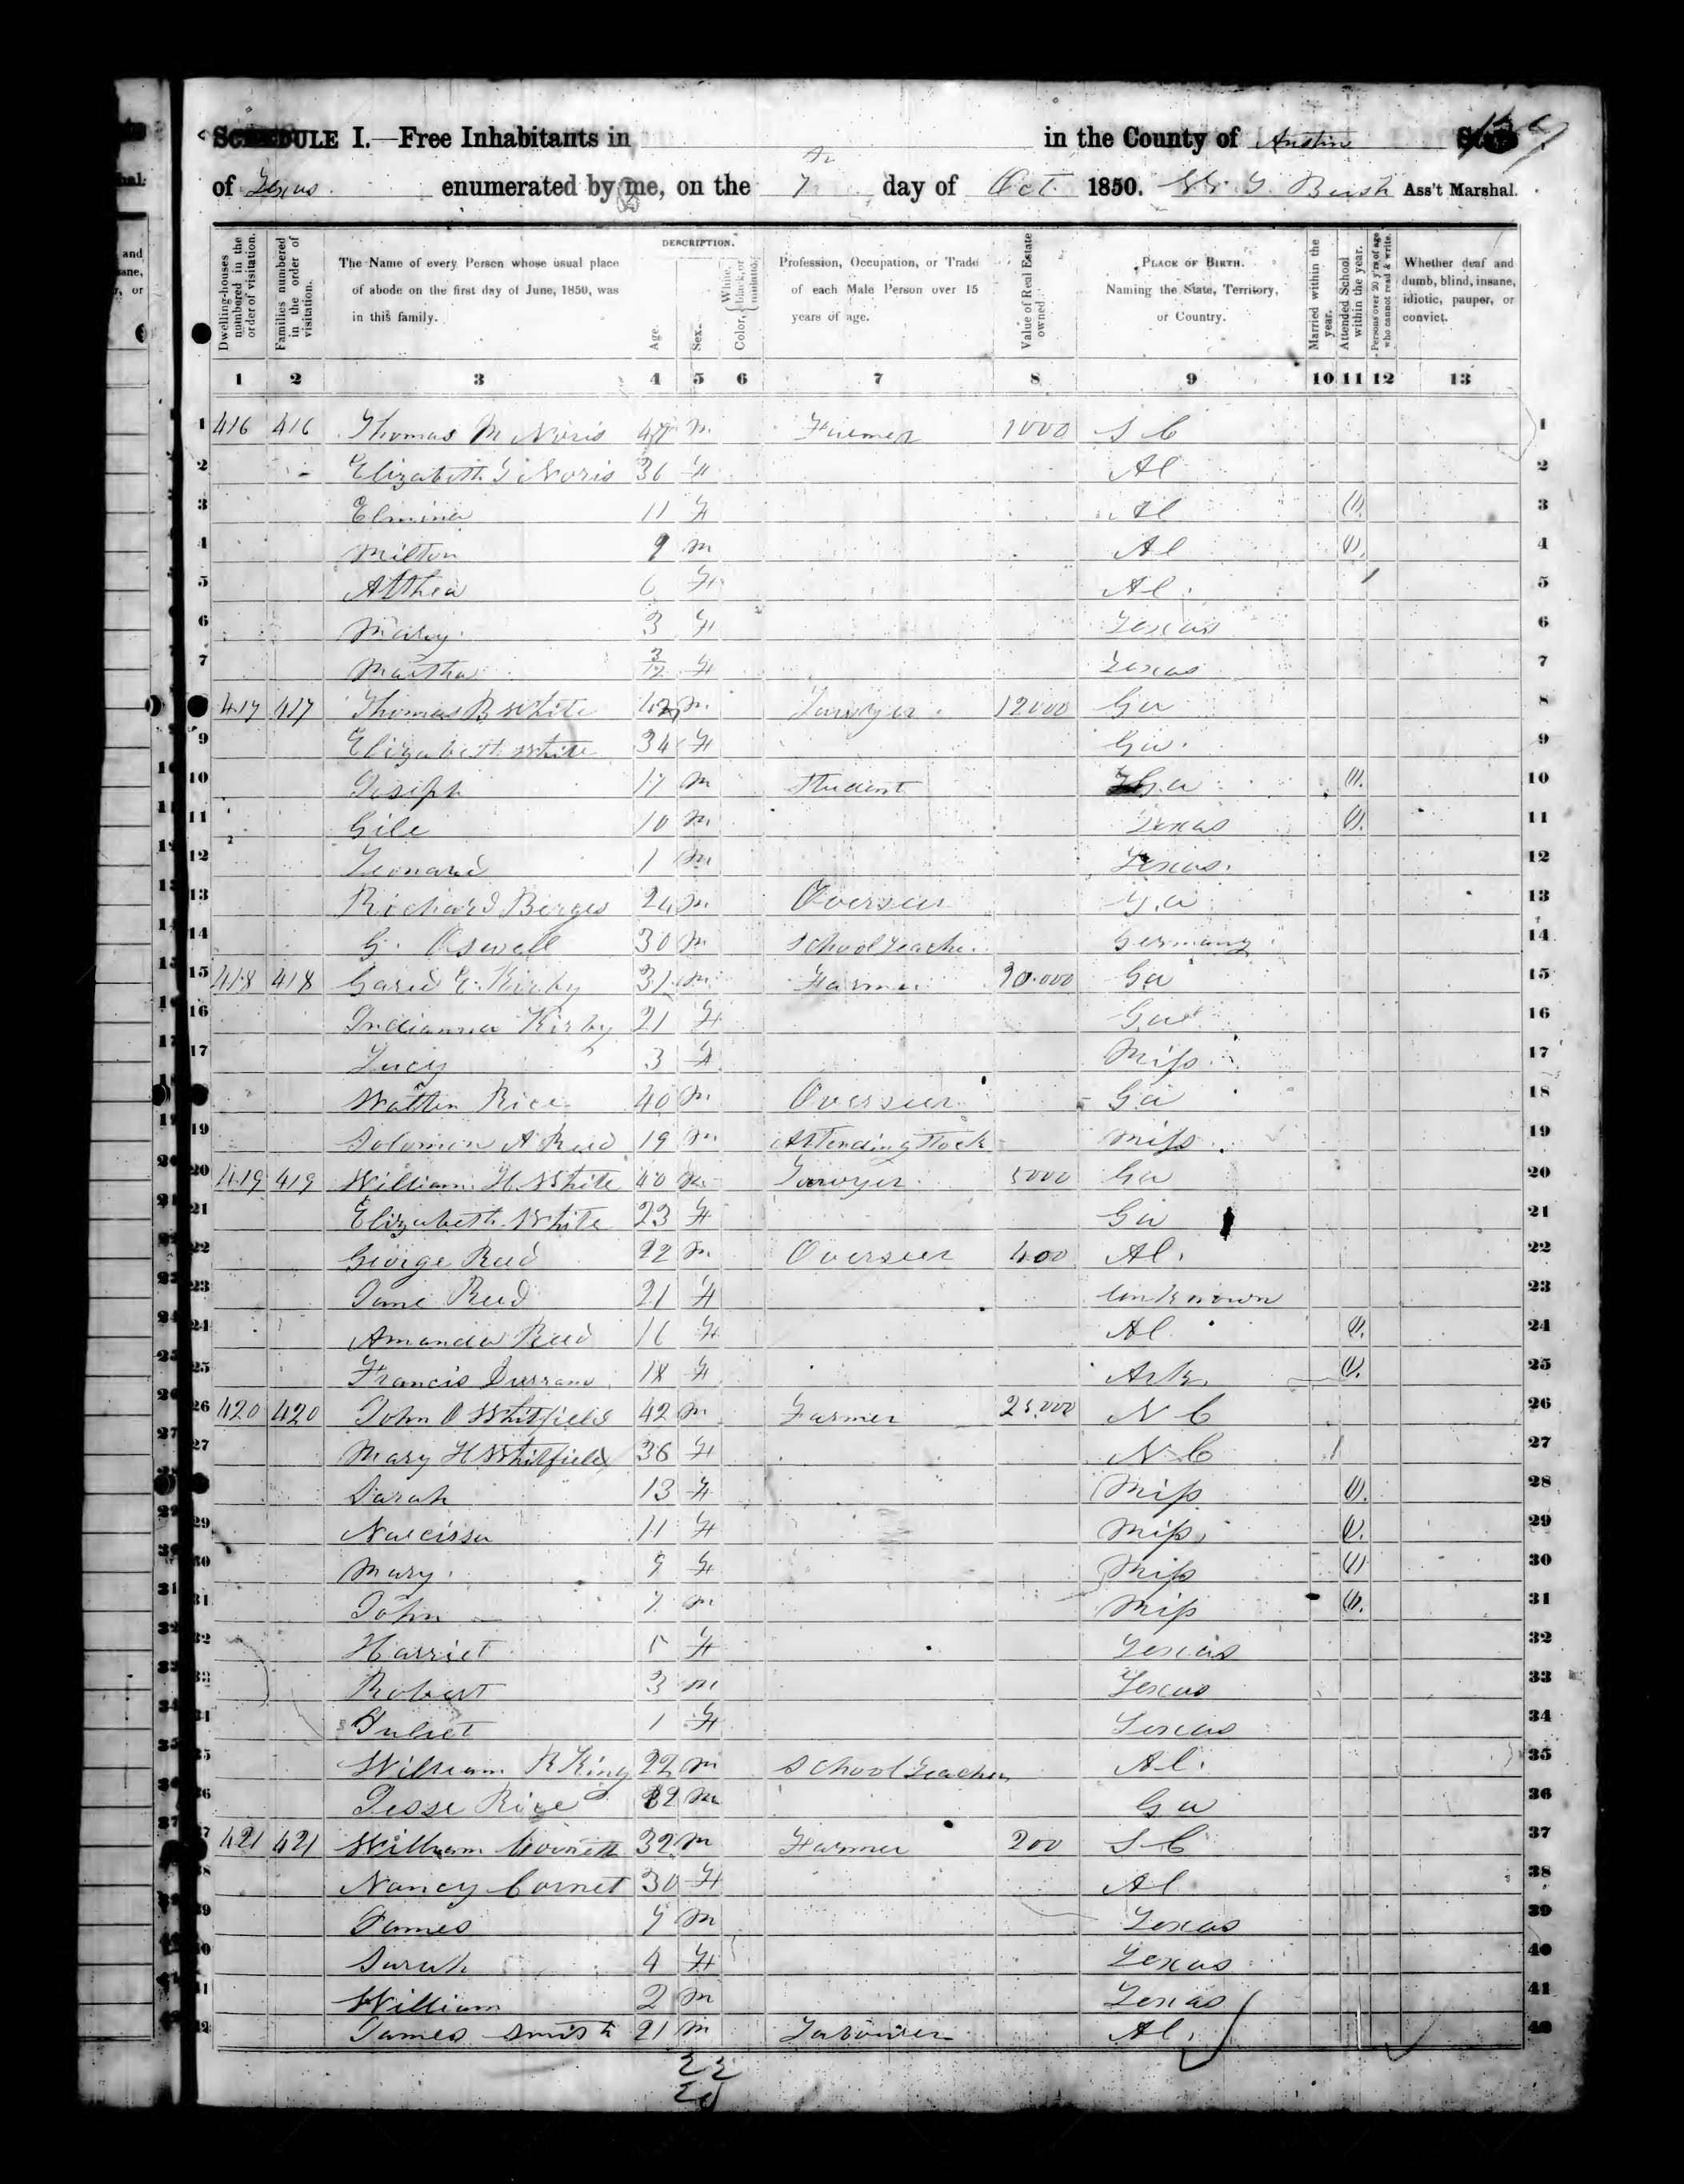 SCHEDULE I.—Free Inhabitants in in the County of Austin State
of Texas. enumerated by me, on the 7 day of Oct. 1850. Bush Ass't Marshal.
Dwelling-houses numbered in the order of visitation.
Families numbered in the order of visitation.
The Name of every Person whose usual place of abode on the first day of June, 1850, was in this family.
DESCRIPTION.
Age.
Sex.
Color, White, black, or mulatto.
Profession, Occupation, or Trade of each Male Person over 15 years of age.
Value of Real Estate owned.
PLACE OF BIRTH. Naming the State, Territory, or Country.
Married within the year.
Attended School within the year.
Persons over 20 y'rs of age who cannot read & write.
Whether deaf and dumb, blind, insane, idiotic, pauper, or convict.
1 2 3 4 5 6 7 8 9 10 11 12 13
1 416 416 Thomas M Noris 47 m 1000 S C 1
2 Elizabeth G Noris 36 F Al 2
3 Elmina 11 F Al (1). 3
4 Milton 9 m Al (1). 4
5 Althea 6 F Al. 5
6 Mary. 3 F Texas 6
7 Martha 3/12 F Texas 7
417 417 Thomas B White m. Lawyer. 12000 Ga 8
9 Elizabeth White 34 F Ga. 9
10 Joseph 17 m Student Ga (1). 10
11 Gile 10 m. Texas (1). 11
12 Leonard 1 m Texas. 12
13 Richard Berges 24 m. Overseer Ga 13
14 G. Oswell 30 m School Teacher. Germany. 14
15 418 418 Gared E. Kirby 31 m. Farmer 20.000 Ga 15
16 Indianna Kirby 21 F Ga 16
17 Lucy 3 F Miss. 17
Walter Rice 40 m. Overseer. Ga 18
19 Solomon A Reed 19 m Attending Stock Miss. 19
20 419 419 William. H. White 40 m. Lawyer. 5000 Ga 20
21 Elizabeth White 23 F Ga 21
22 George Reed 22 m Overseer 400 Al. 22
23 Jane Reed 21 F Unknown 23
24 Amanda Reed 16 F Al (1). 24
25 Francis 18 F Ark. (1). 25
26 420 420 John O Whitfield 42 m Farmer 25.000 N C 26
27 Mary H Whitfield 36 F N C 1 27
Sarah 13 F Miss (1). 28
29 Narcissa 11 F Miss. (1). 29
30 Mary. 9 F Miss (1) 30
31 John 7. m Miss (1). 31
32 Harriet 5 F Texas 32
33 Robert 3 m Texas 33
34 Juliet 1 F Texas 34
35 William R King 22 m School Teacher Al. 35
36 Jesse Rice m Ga 36
37 421 421 William Cornett 32 m Farmer 200 S C 37
38 Nancy Cornet 30 F Al 38
39 James 7 m Texas 39
40 Sarah 4 F Texas 40
41 William 2 m Texas 41
42 James Smith 21 m Labourer Al. 42
22
20